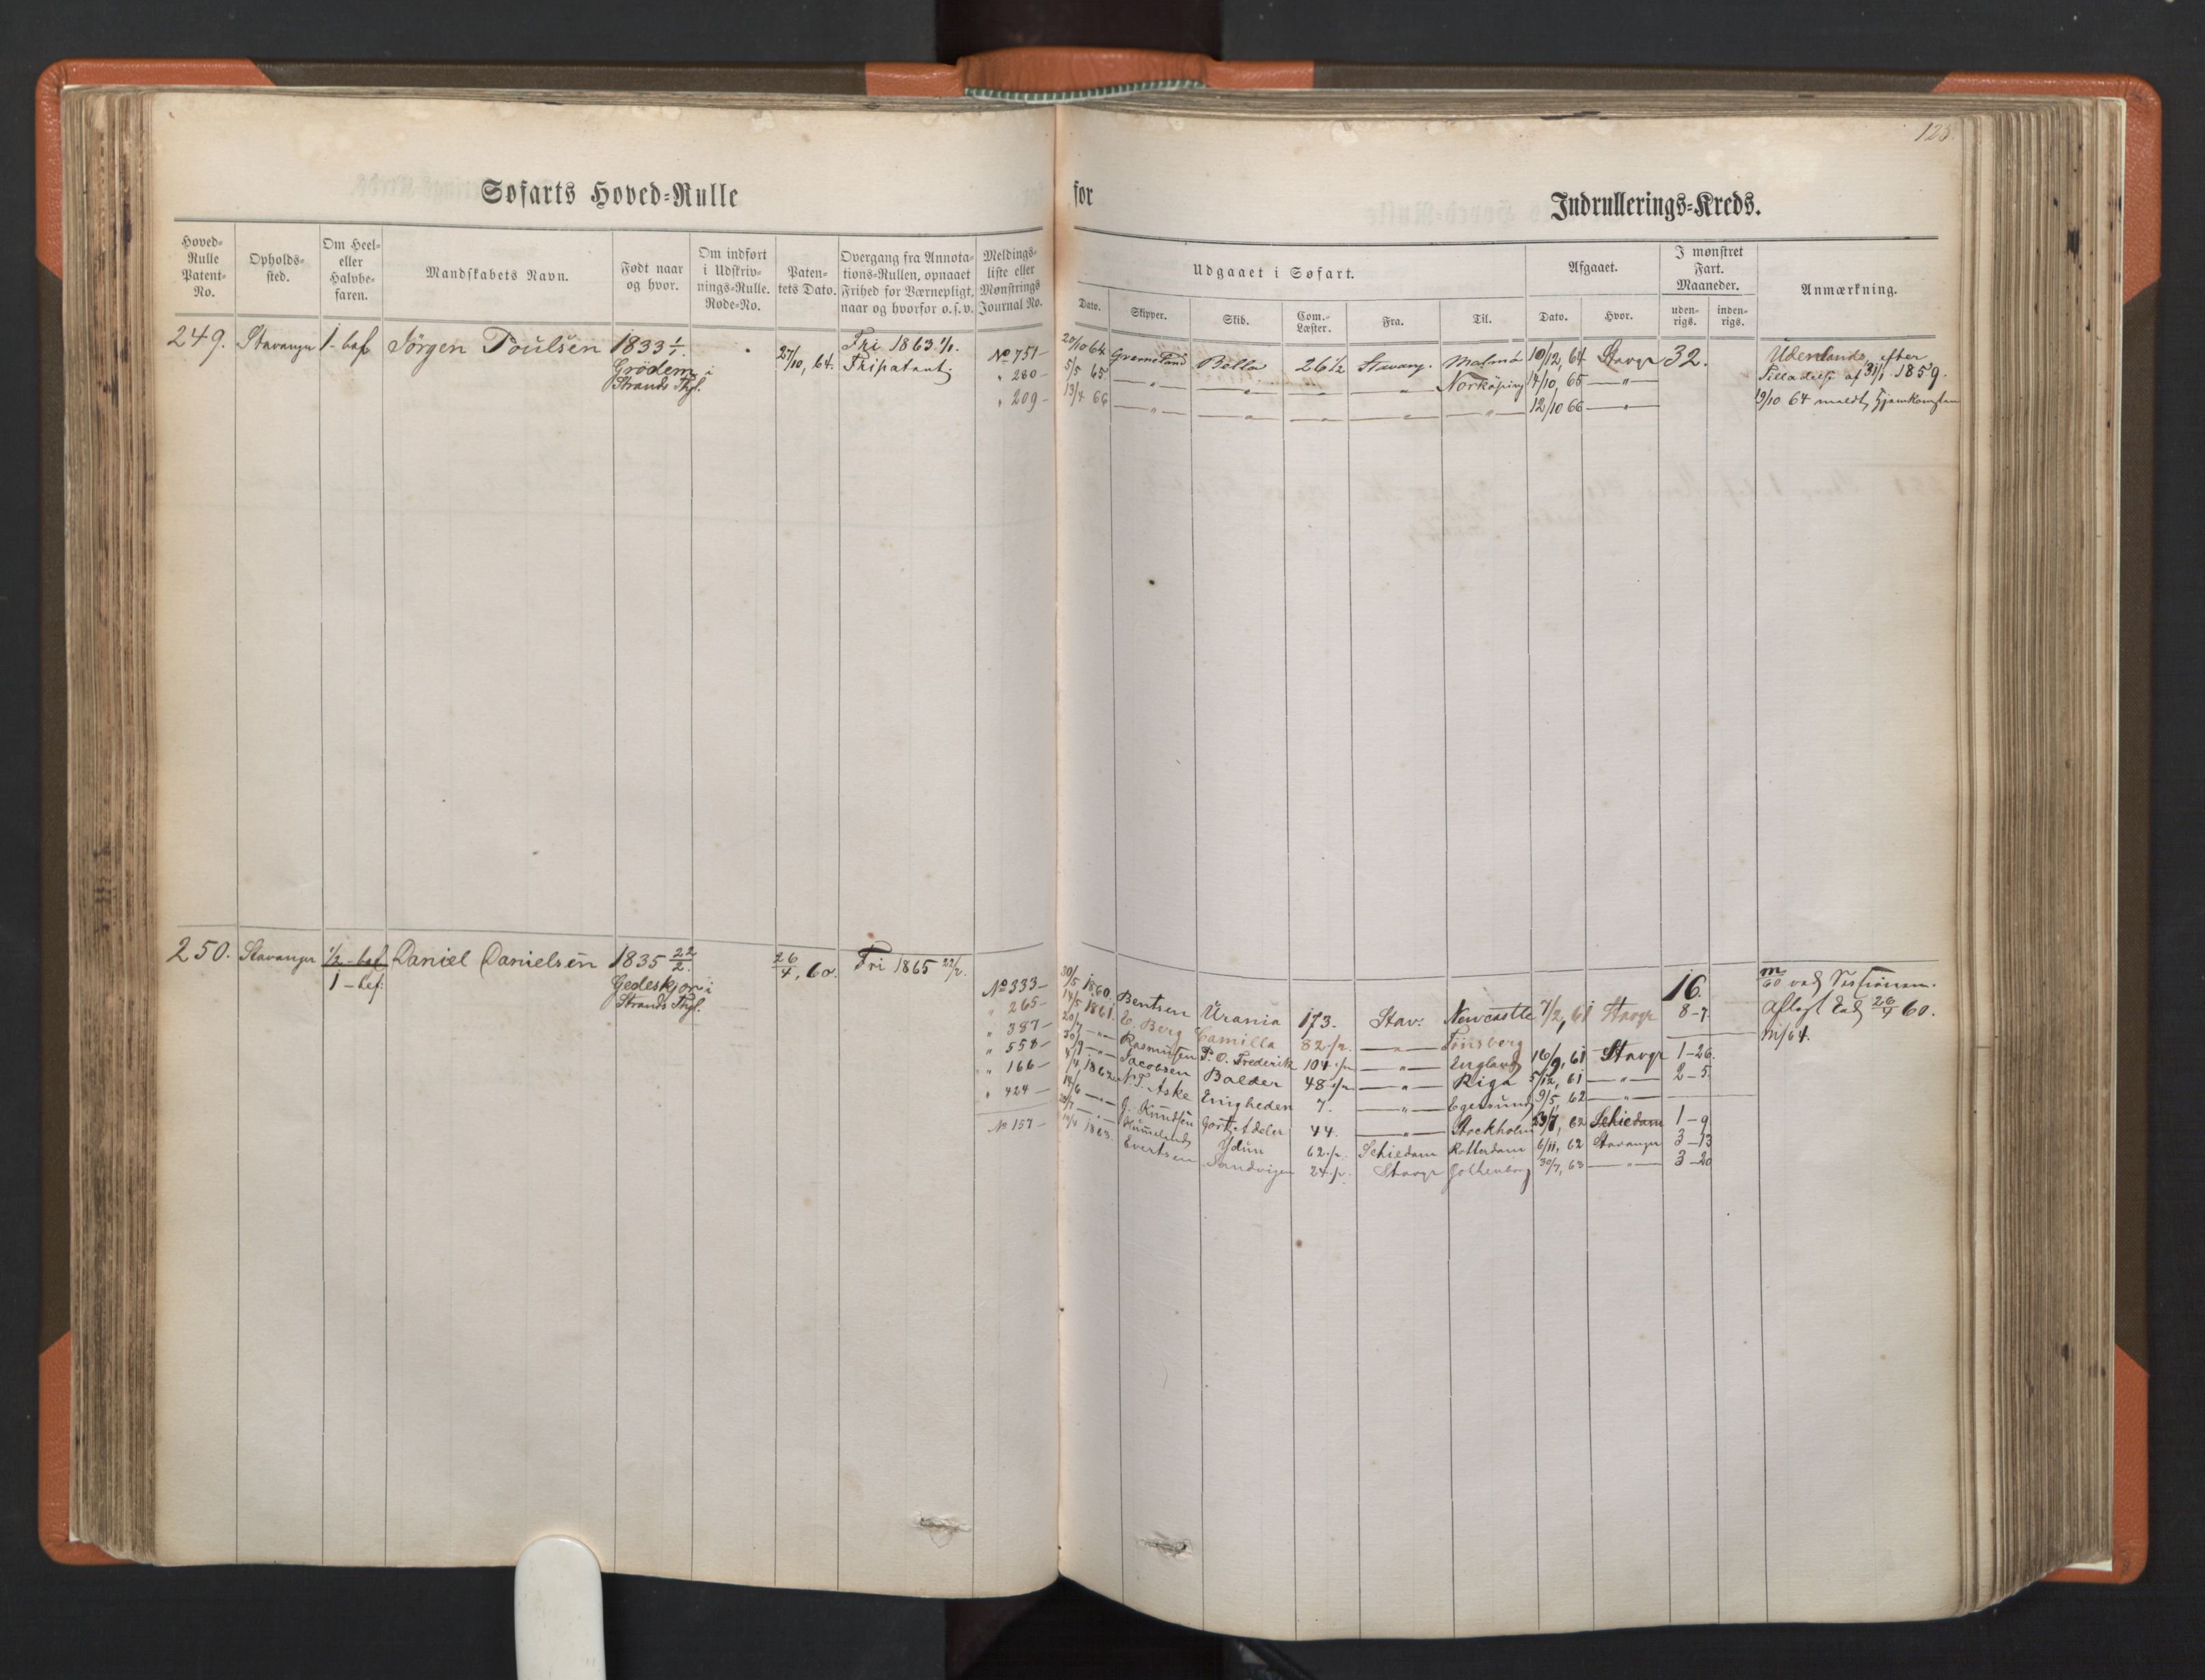 128.
Søfarts Hoved-Rulle for Indrullerings-Kreds.
Hoved-Rulle Patent-No.
Opholds-sted.
Om Heel- eller Halvbe-faren.
Mandskabets Navn.
Født naar og hvor.
Om indført i Udskriv-nings-Rulle. Rode-No.
Paten-tets Dato.
Overgang fra Annota-tions-Rullen, opnaaet Frihed for Værnepligt, naar og hvorfor o.s.v.
Meldings-liste eller Mønstrings Journal No.
Udgaaet i Søfart.
Dato. Skipper. Skib. Com.-Læster. Fra. Til.
Afgaaet.
Dato. Hvor.
I mønstret Fart. Maaneder.
uden-rigs. inden-rigs.
Anmærkning.
249. Stavanger 1-bef Jörgen Poulsen 1833 1/1. 27/10, 64. Fri 1863 1/1. No 751 – 20/10 64 Bella 26 1/2 Stavang. Malmö 10/12, 64 Stavgr 32. Udenlands, efter
Grödem i Fripatent. " 280 – 5/5 65 — " — — " — — " — — " — Norköping 14/10, 65 — " — Tilladelse af 31/1 1859.
Strands Thgl. " 209 – 13/4 66 — " — — " — — " — — " — — " — 12/10 66 — " — 19/10 64 meldt Hjemkomsten
250. Stavanger 1/2 - bef Daniel Danielsen 1835 22/2. 26/4, 60. Fri 1865 22/2.
1 - bef: Gedeskjær i
Strands Thgl.
No 333 – 30/5 1860. Bentsen Urania 173. Stav: Newcastle 7/2, 61 Stavgr 16. 8-7
" 265 – 14/5 1861. C. Berg Camilla 82 1/2. — " — Tönsberg
" 387 – 20/7 — " — Rasmussen P. O. Frederik 104 1/2 — " — England 16/9, 61 Stavgr 1-26.
" 558 – 30/9 — " — Jacobsen Balder 48 1/2 — " — Riga 5/12, 61 — " — 2-5
" 166 – 8/4, 1862 N. T. Aske Enigheden 7. — " — Egersund 9/5, 62 — " —
" 424 – 14/6 — " — G. Knudsen Gort Adeler 44. — " — Stockholm 23/7, 62 Schiedam 1-9
Hummeland Ydun 62 1/2. Schiedam Rotterdam 6/11, 62 Stavanger 3-13
No 157 – 14/4 1863. Evertsen Sandvigen 24 1/2. Stavgr Gothenborg 30/7, 63 — " — 3-20
m/60 ved Sessionen.
Aflagt Eed 26/4 60.
m/64.